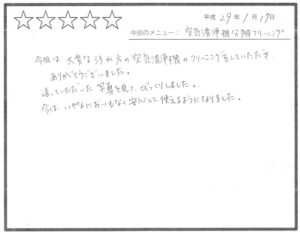 平成 29年 1月 19日
今回のメニュー： 空気清浄機分解クリーニング
今回は 大変な汚れ方の空気清浄機のクリーニングをしていただき、
ありがとうございました。
送っていただいた 写真を見て、びっくりしました。
今は、いやなにおいもなく安心して使えるようになりました。